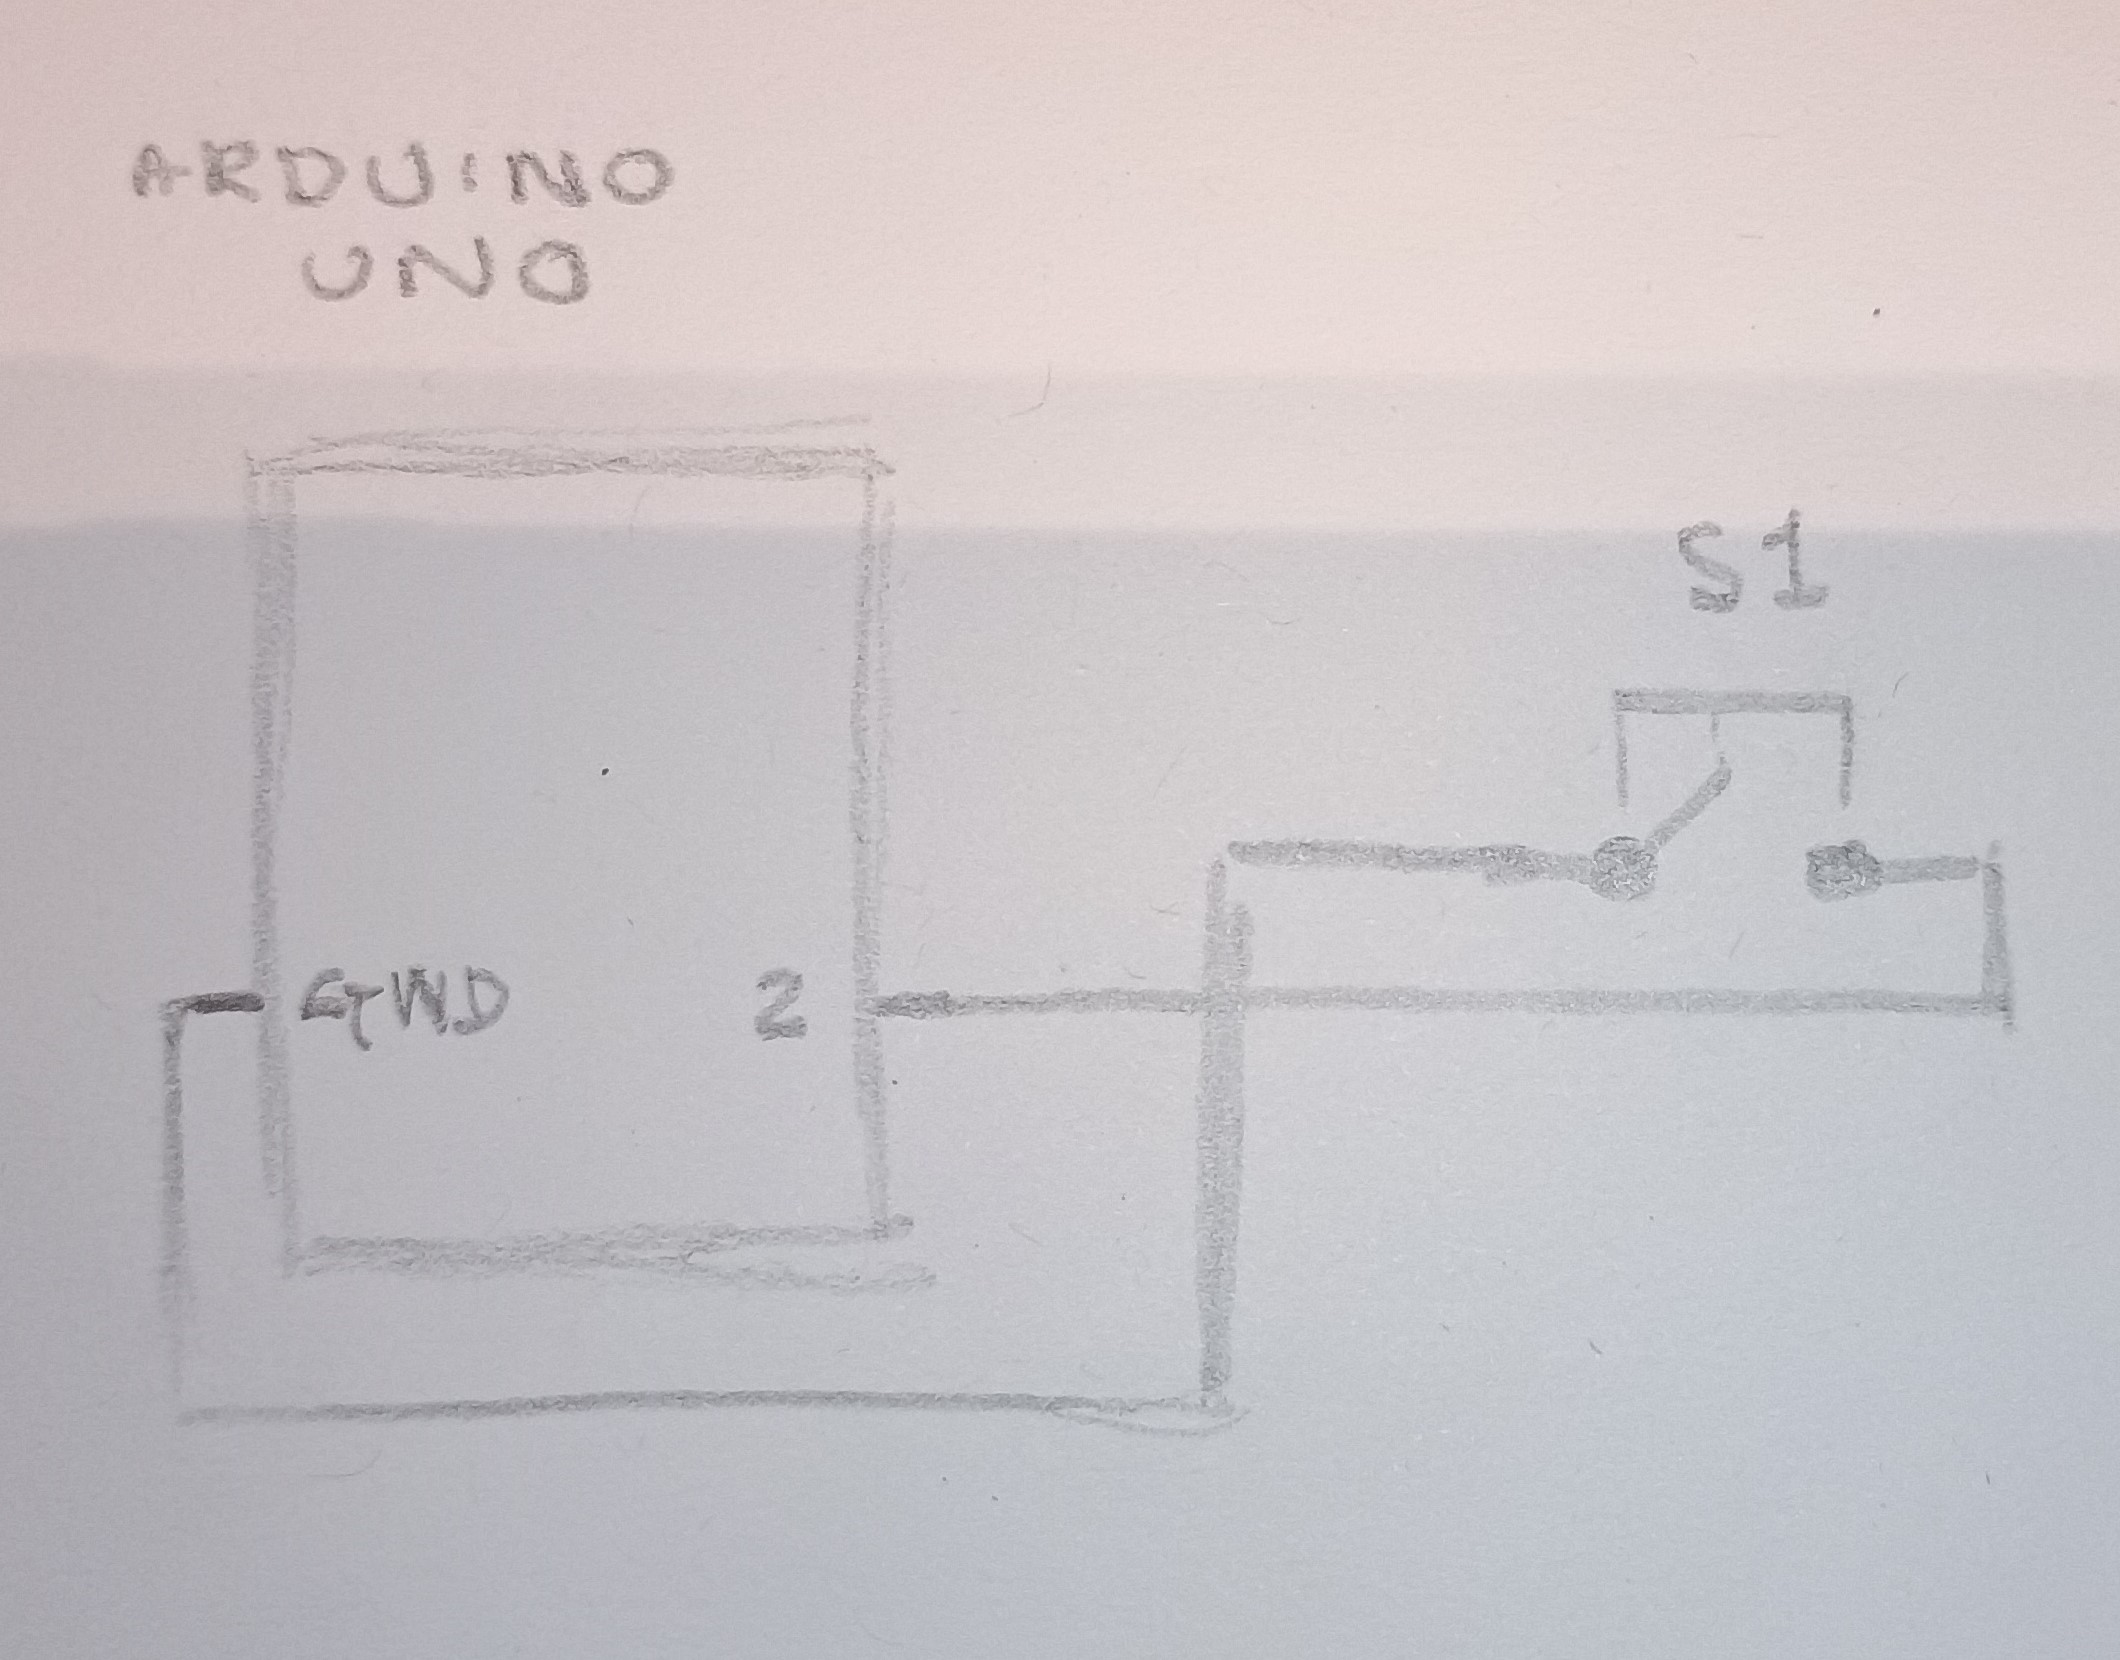 ARDUINO
UNO
S1
GND 2